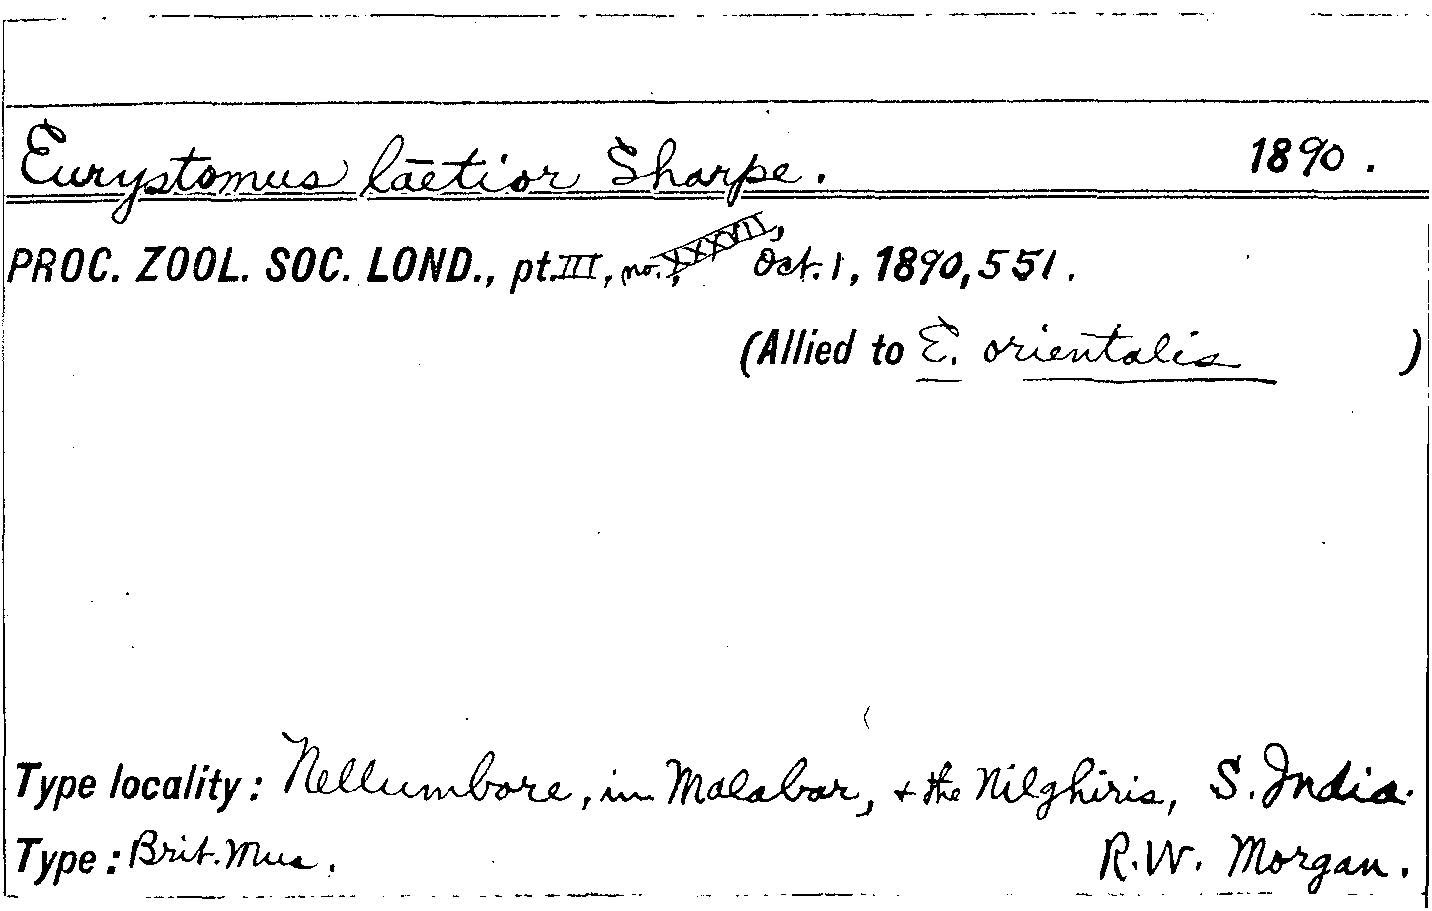 Eurystomus laetior Sharpe. 1890.
PROC. ZOOL. SOC. LOND., pt. III, no. XXXVII, Oct. 1, 1890, 551.
(Allied to E. orientalis )
Type locality: Nellumbore, in Malabar, + the Nilghiris, S. India.
Type: Brit. Mus. R. W. Morgan.